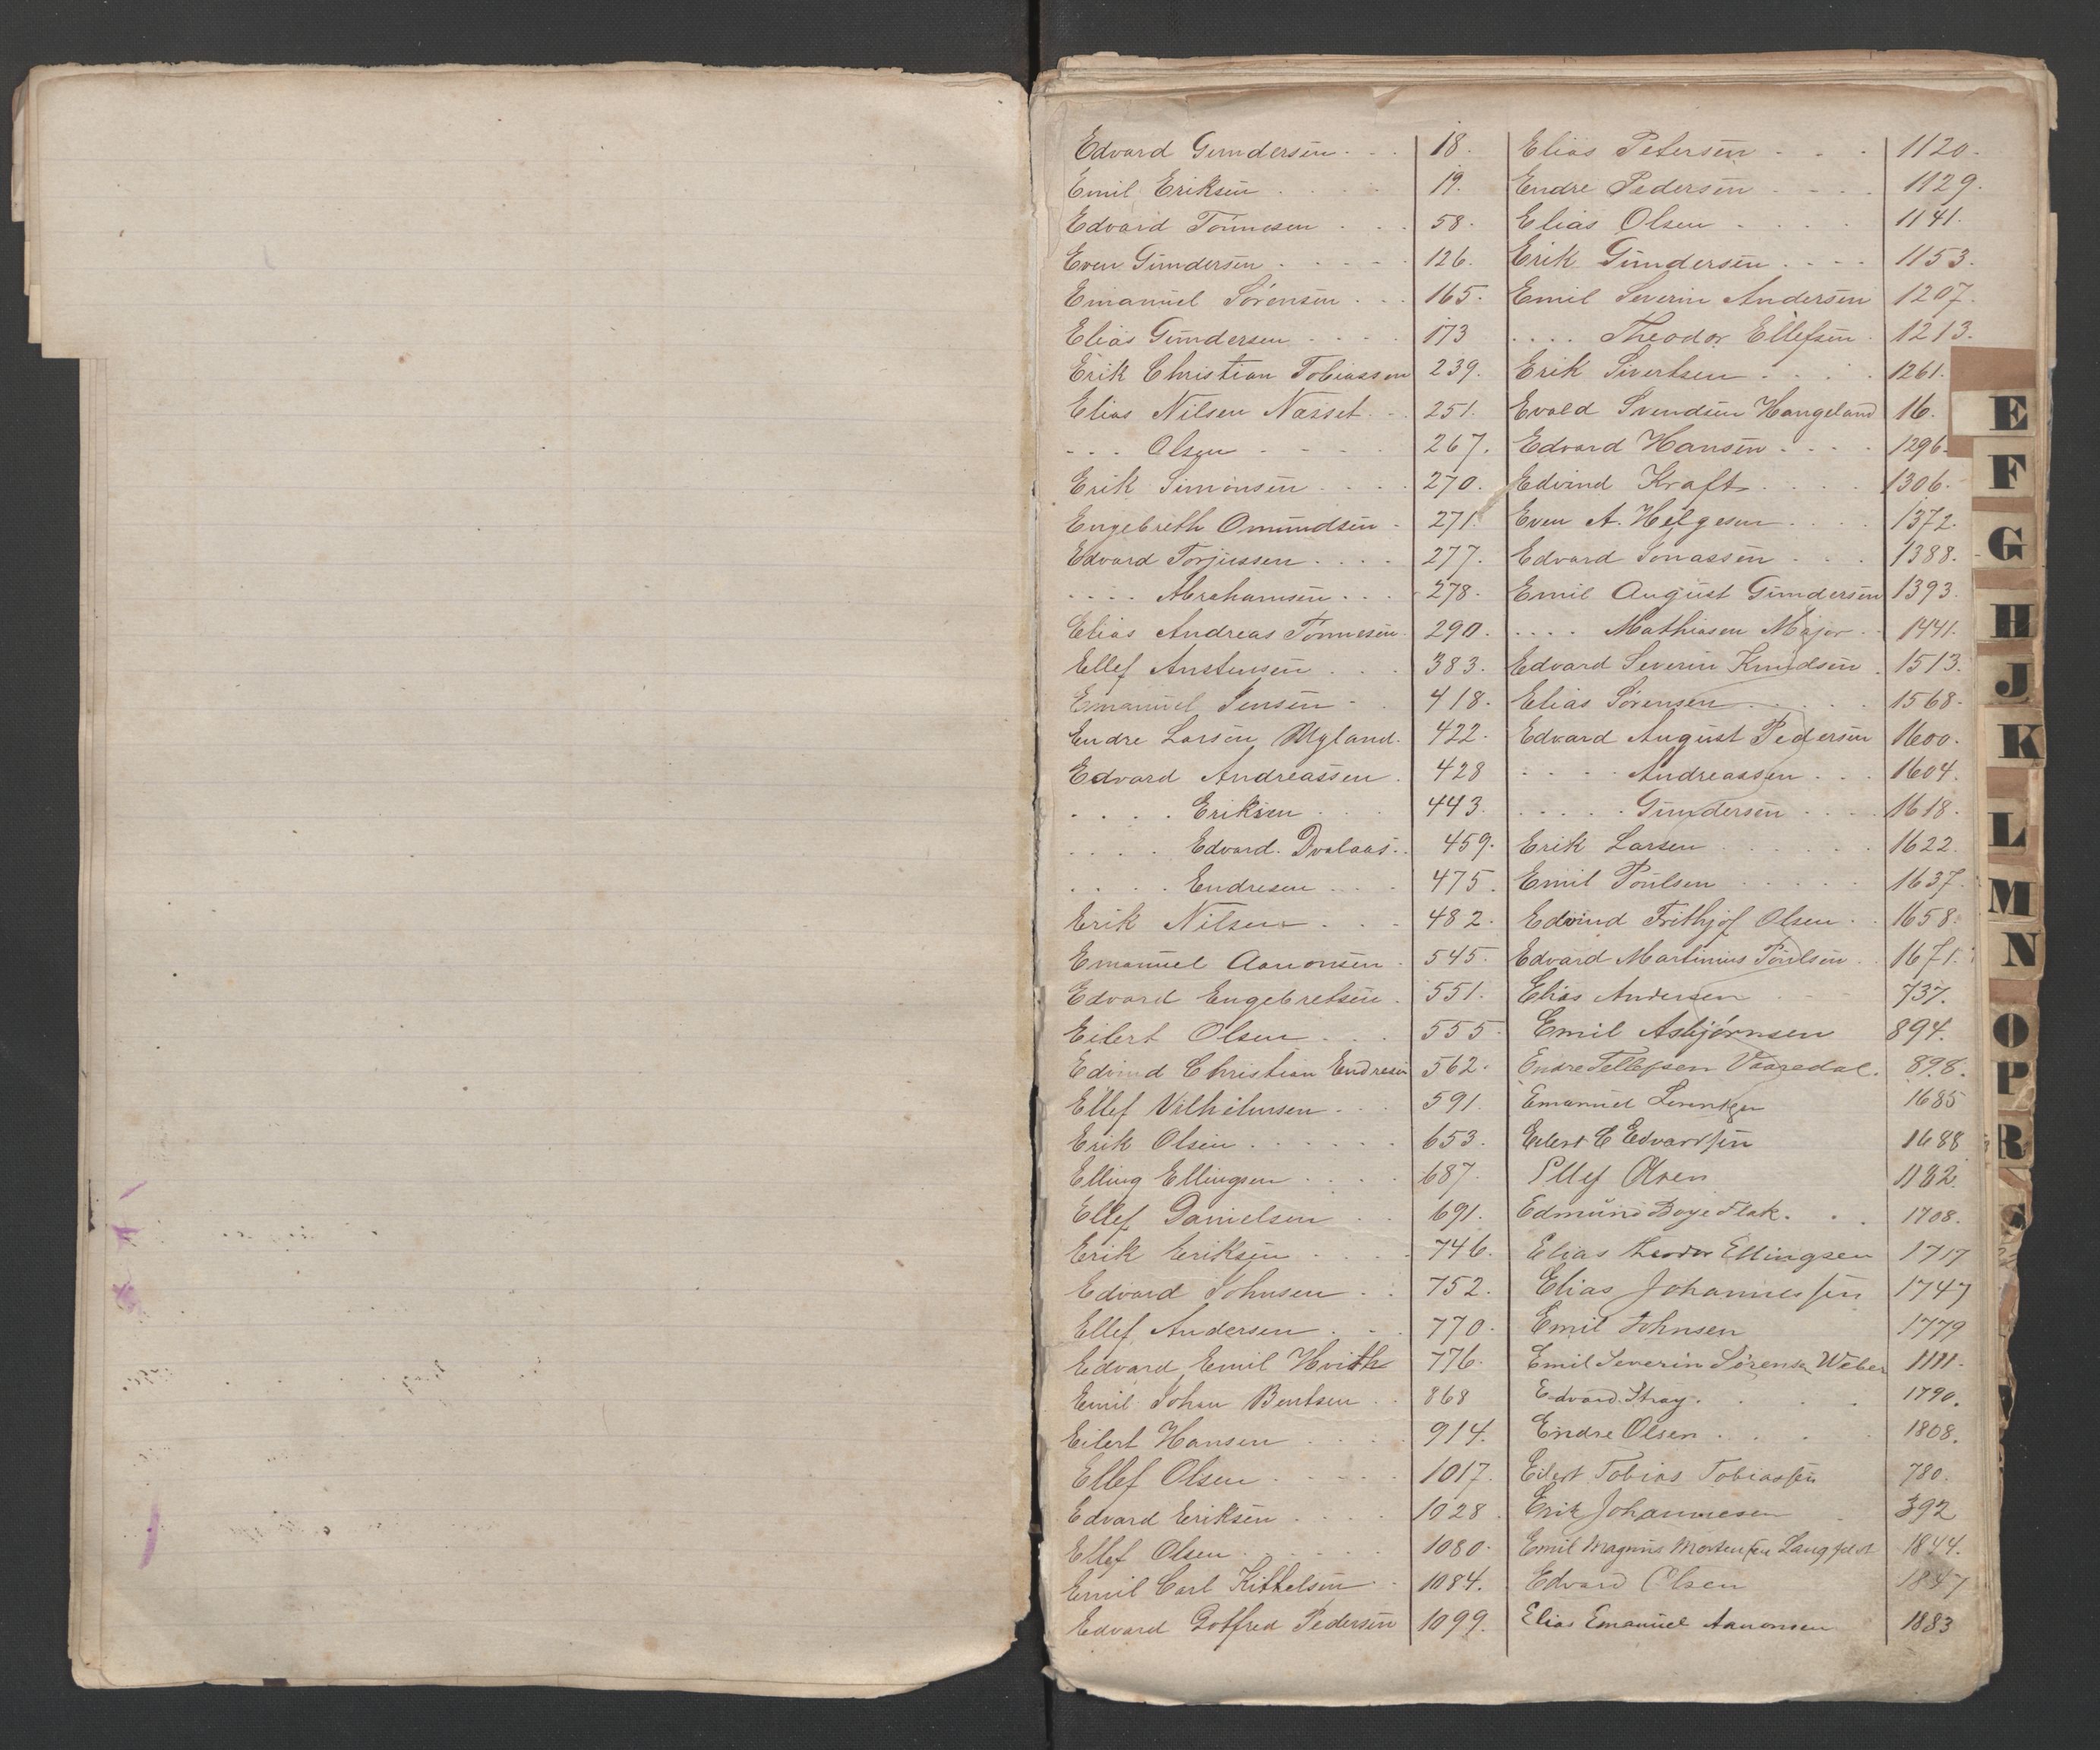 Edvard Gundersen . . . 18.
Emil Eriksen . . . . 19.
Edvard Tönnesen . . . 58.
Even Gundersen . . . . . 126.
Emanuel Sörensen . . . 165.
Elias Gundersen . . . . 173
Erik Christian Tobiassen 239.
Elias Nilsen Næsset . . 251.
. . . Olsen . . . . 267.
Erik Simonsen . . . . 270.
Engebreth Omundsen . 271.
Edvard Torjussen . . . . 277.
. . . . Abrahamsen . . . 278.
Elias Andreas Tönnesen. 290.
Ellef Anstensen . . . 383.
Emanuel Jensen . . 418.
Endre Larsen Myland. 422.
Edvard Andreassen . 428
. . . . Eriksen . . . 443.
. . . . Edvard. Dvalaas . . 459.
. . . . Endresen . . . 475.
Erik Nilsen . . . 482.
Emanuel Aanonsen . 545.
Edvard Engebretsen . 551.
Eilert Olsen . . . 555.
Edvind Christian Endresen 562.
Ellef Vilhelmsen . . . 591.
Erik Olsen . . . . . . 653.
Elling Ellingsen . . . . 687.
Ellef Danielsen . . 691.
Erik Eriksen . . . . 746.
Edvard Johnsen . . 752.
Ellef Andersen . . . 770.
Edvard Emil Hvith 776.
Emil Johan Bentsen . . 868
Eilert Hansen . . . . 914.
Ellef Olsen . . . . . 1017.
Edvard Eriksen . . . . 1028.
Ellef Olsen . . . . . 1080.
Emil Carl Kittelsen . . 1084.
Edvard Gotfred Pedersen 1099.
Elias Petersen . . . 1120.
Endre Pedersen . . . . 1129.
Elias Olsen . . . . 1141.
Erik Gundersen . . . . 1153.
Emil Severin Andersen 1207.
. . . . Theodor Ellefsen . 1213.
Erik Sivertsen . . . . 1261.
Evald Svendsen Haugeland 16.
Edvard Hansen . . . . 1296.
Edvind Kraft . . . . 1306.
Even A. Helgesen . . . . 1372.
Edvard Jonassen . . . 1388.
Emil August Gundersen 1393.
. . . . Mathiasen Major . . 1441.
Edvard Severin Knudsen . 1513.
Elias Sörensen . . . . . 1568.
Edvard August Pedersen 1600.
. . . . Andreassen . . . 1604.
. . . . . Gundersen . . . . 1618.
Erik Larsen . . . . . . 1622.
Emil Poulsen . . . . . 1637.
Edvind Frithjof Olsen . . 1658.
Edvard Martinius Poulsen . . 1671.
Elias Andersen . . . 737.
Emil Asbjörnsen 894.
Endre Tellefsen Vaaredal. 898.
Emanuel Lorentzen 1685
Eilert C Edvardsen 1688
Ellef Olsen 1182.
Edmund Boye Flak . . . 1708.
Elias Theodor Ellingsen 1717
Elias Johannessen 1747
Emil Johnsen 1779
Emil Severin Sörensen Weber 1111.
Edvard Stray . . . . 1790.
Endre Olsen . . . . . 1808.
Eilert Tobias Tobiassen 780.
Erik Johannesen . 392
Emil Magnus Mortensen Langfeldt 1844.
Edvard Olsen 1847
Elias Emanuel Aanonsen 1883
E
F
G
H
J
K
L
M
N
O
P
R